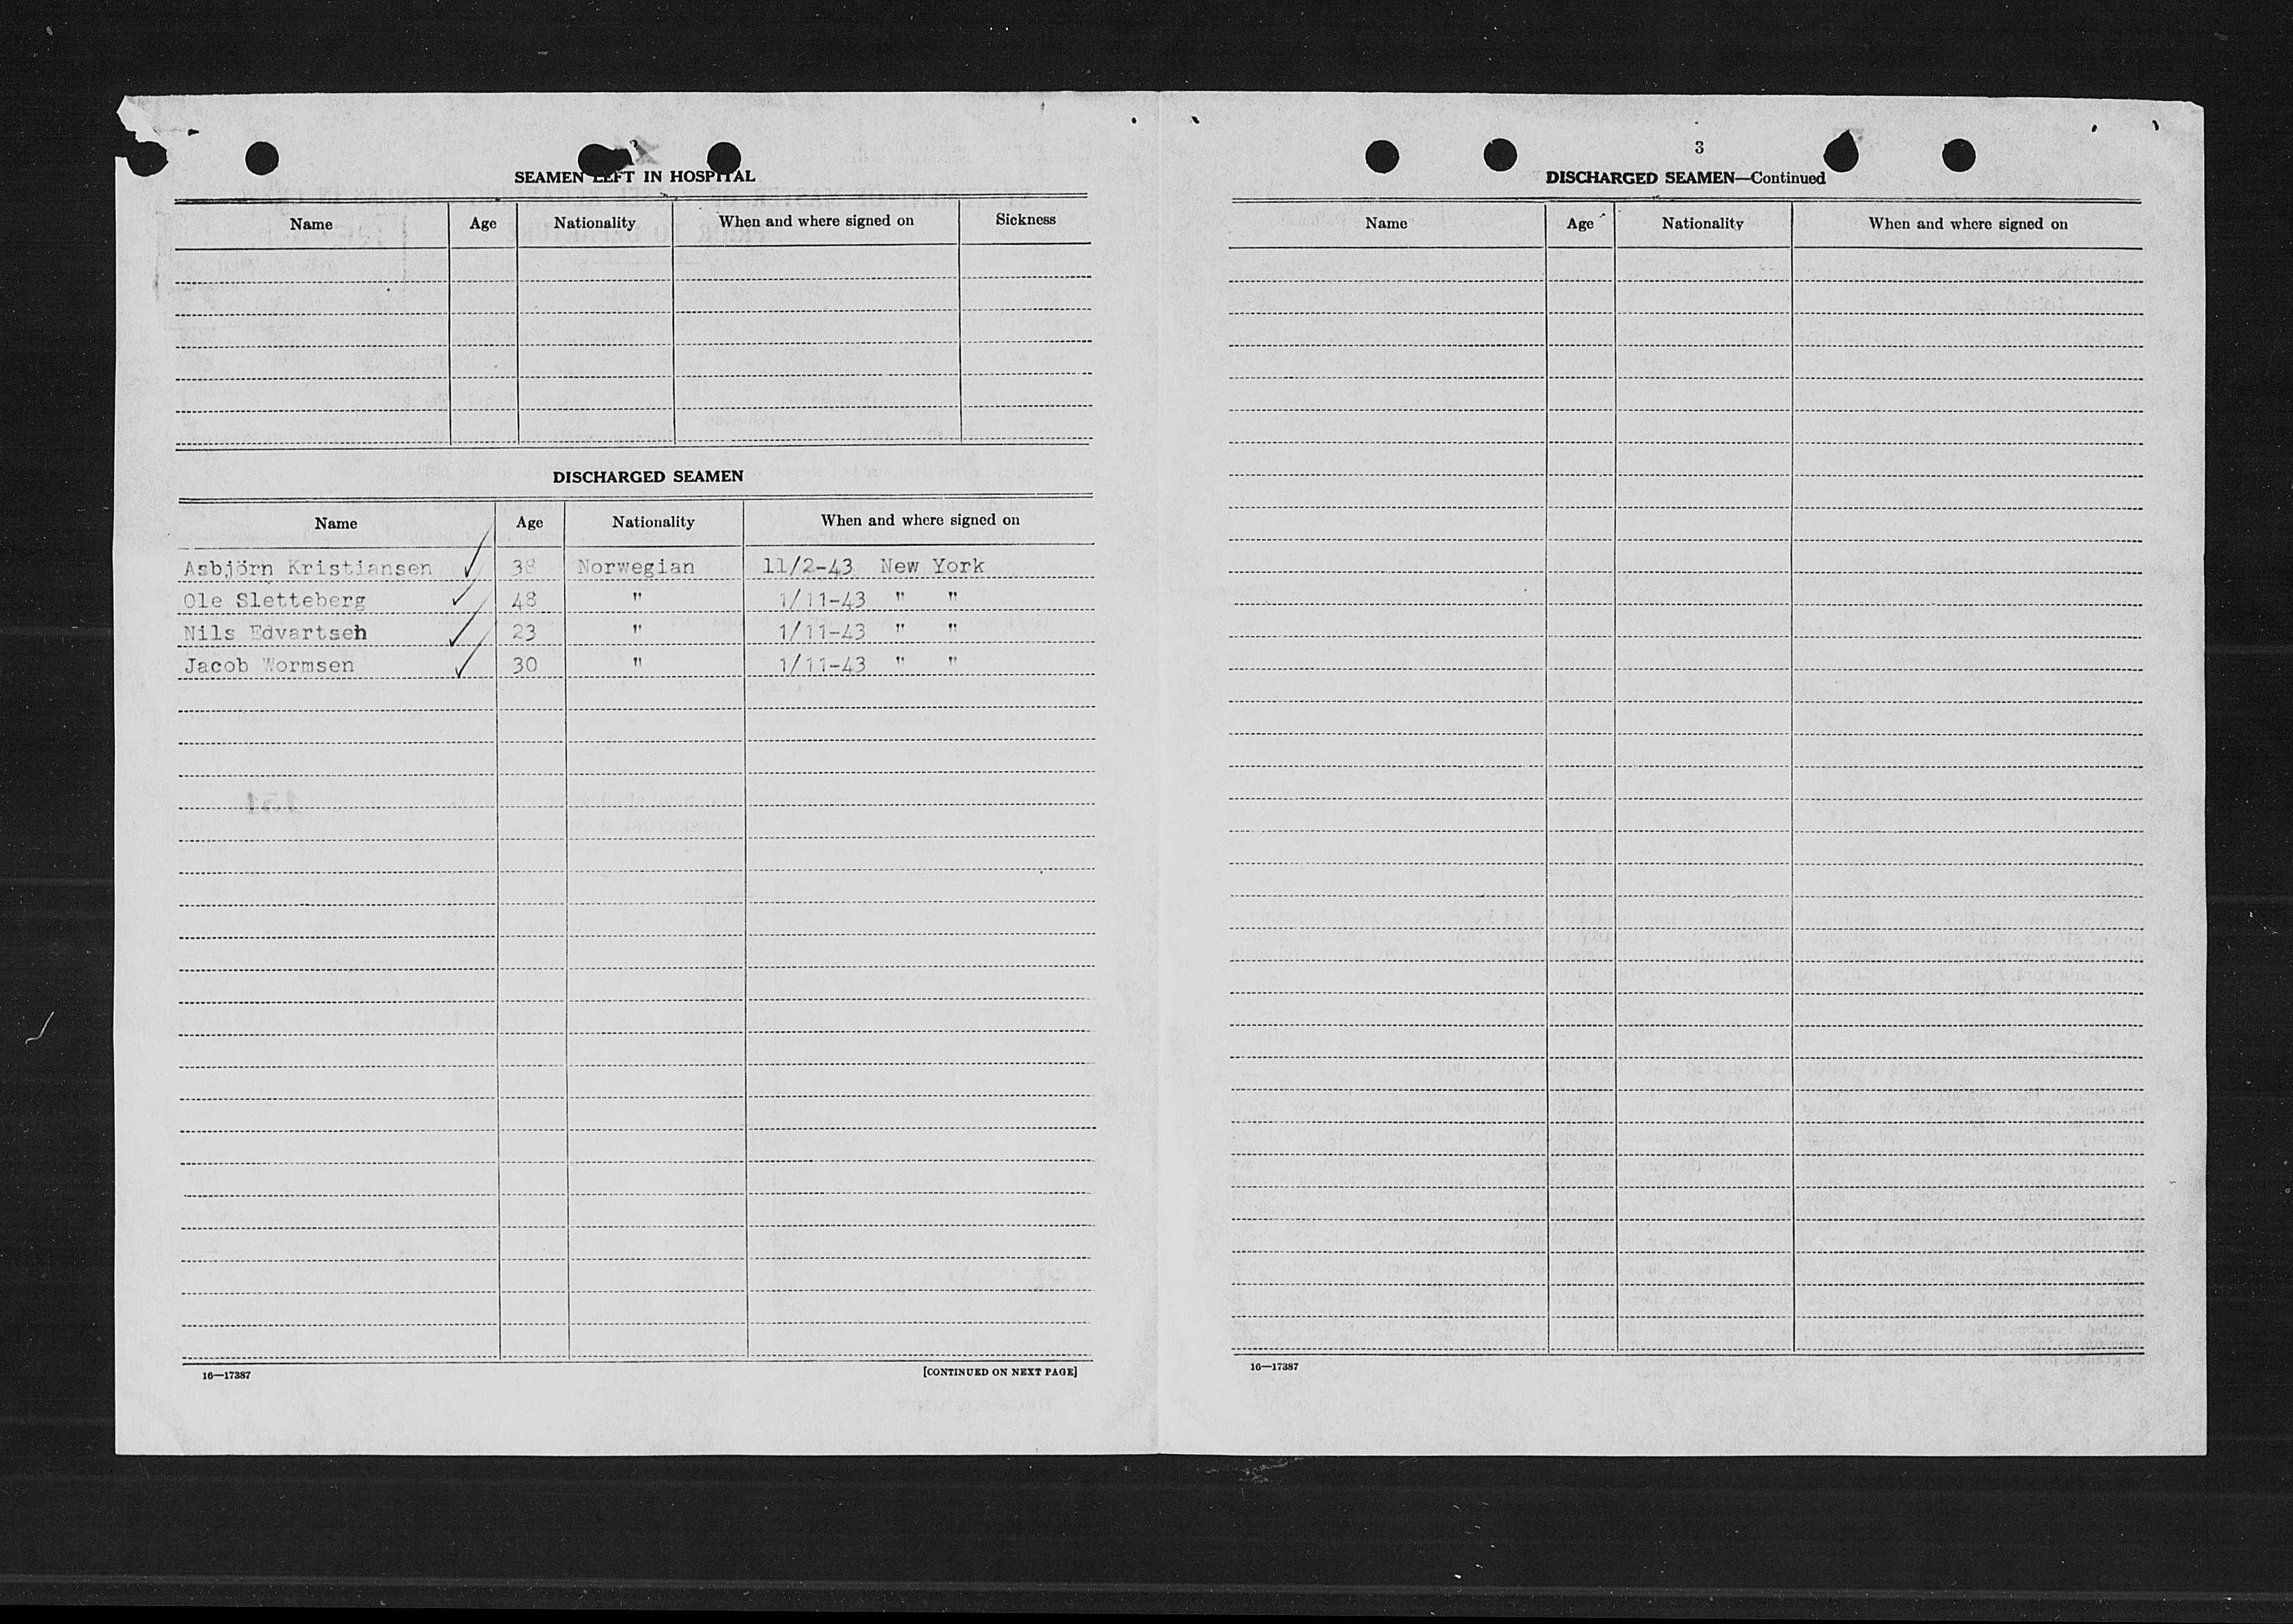 SEAMEN LEFT IN HOSPITAL
Name Age Nationality When and where signed on Sickness
DISCHARGED SEAMEN
Name Age Nationality When and where signed on
Asbjörn Kristiansen 38 Norwegian 11/2-43 New York
Ole Sletteberg 48 " 1/11-43 " "
Nils Edvartsen 23 " 1/11-43 " "
Jacob Wormsen 30 " 1/11-43 " "
16—17387 [CONTINUED ON NEXT PAGE]
3
DISCHARGED SEAMEN—Continued
Name Age Nationality When and where signed on
16—17387